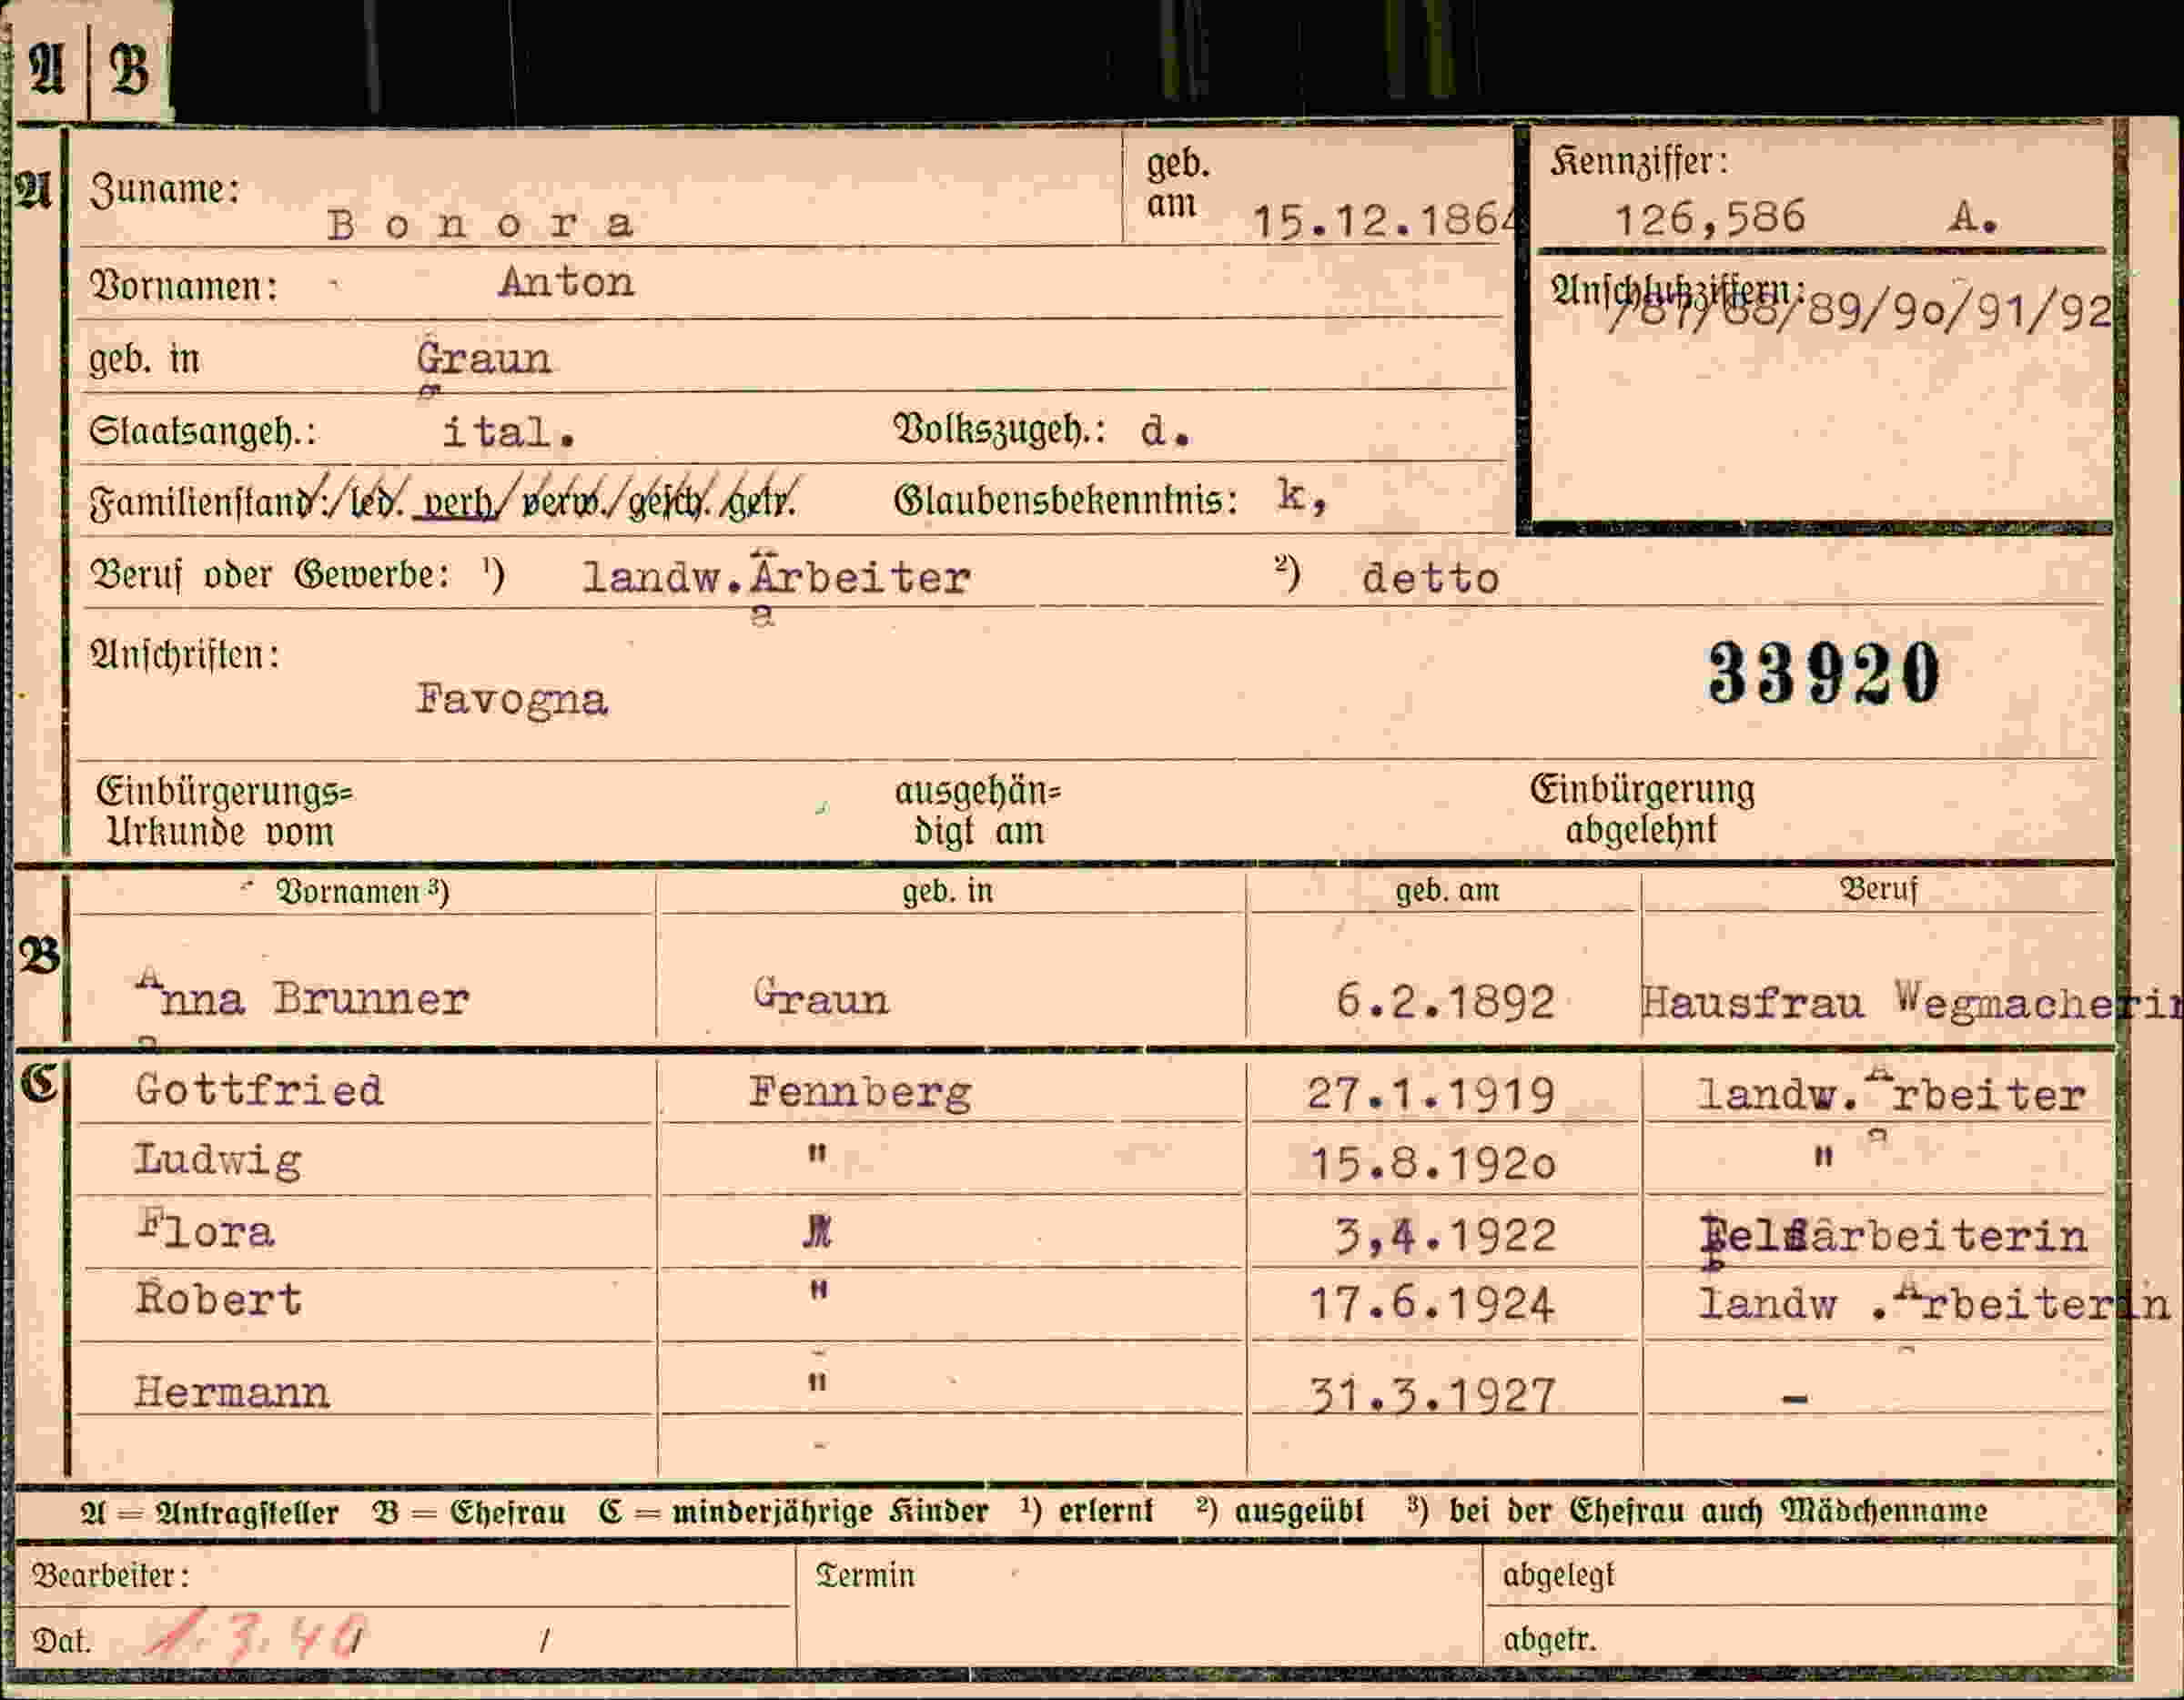 A | B
A Zuname: Bonora geb. am 15.12.1864 Kennziffer: 126,586 A.
Vornamen: Anton Anschlußziffern: /87/88/89/9o/91/92
geb. in Graun
Staatsangeh.: ital. Volkszugeh.: d.
Familienstand:/led. verh/verw./gesch./getr. Glaubensbekenntnis: k,
Beruf oder Gewerbe: ¹) landw.Arbeiter ²) detto
Anschriften: 33920
Favogna
Einbürgerungs= ausgehän= Einbürgerung
Urkunde vom digt am abgelehnt
Vornamen ³) geb. in geb. am Beruf
B
Anna Brunner Graun 6.2.1892 Hausfrau Wegmacherin
C Gottfried Fennberg 27.1.1919 landw.Arbeiter
Ludwig " 15.8.192o "
Flora " 3,4.1922 Feldarbeiterin
Robert " 17.6.1924 landw .Arbeiterin
Hermann " 31.3.1927 -
A = Antragsteller B = Ehefrau C = minderjährige Kinder ¹) erlernt ²) ausgeübt ³) bei der Ehefrau auch Mädchenname
Bearbeiter: Termin abgelegt
Dat. 1.3.40 / / abgetr.